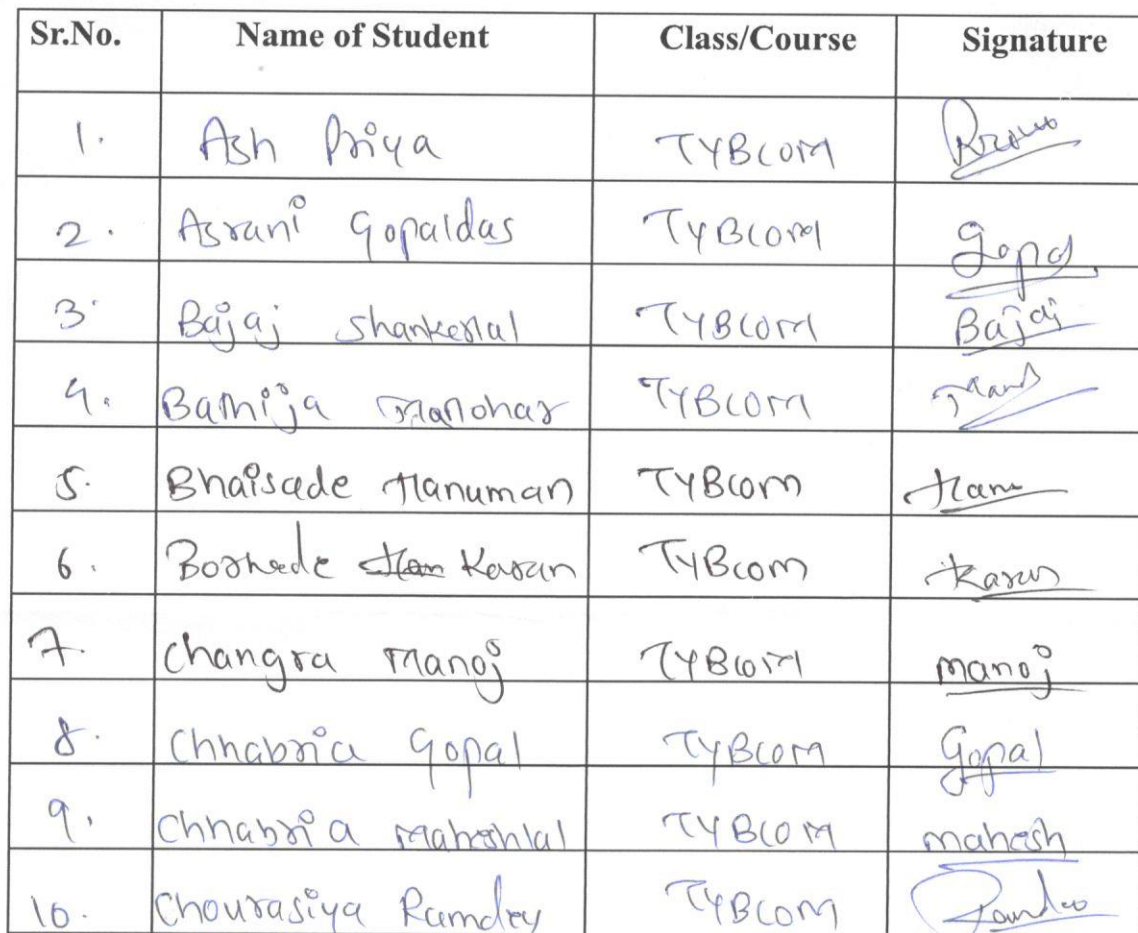 Sr.No. Name of Student Class/Course Signature
1. Ash Priya TYBCOM
2. Asrani Gopaldas TYBCOM Gopal
3. Bajaj Shankerlal TYBCOM Bajaj
4. Bathija Manohar TYBCOM
5. Bhaisade Hanuman TYBCOM Hanu
6. Borhade Karan TYBCOM Karan
7. Changra Manoj TYBCOM Manoj
8. Chhabria Gopal TYBCOM Gopal
9. Chhabria Maheshlal TYBCOM mahesh
10. Chourasiya Ramdev TYBCOM Ramdev